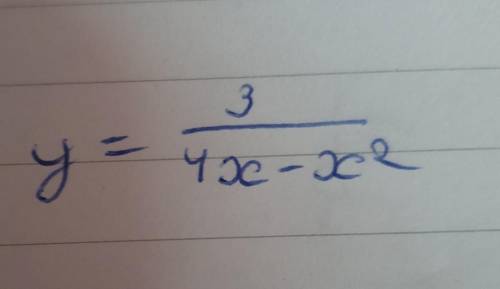 y = 3/(4x - x²)